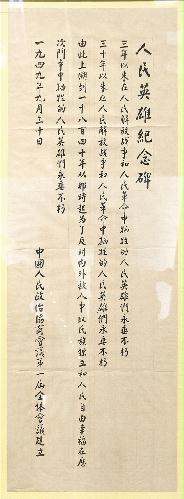 人民英雄纪念碑
三年以来在人民解放战争和人民革命中牺牲的人民英雄们永垂不朽
三十年以来在人民解放战争和人民革命中牺牲的人民英雄们永垂不朽
由此上溯到一千八百四十年从那时起为了反对内外敌人争取民族独立和人民自由幸福在历
次鬥争中牺牲的人民英雄們永垂不朽
一九四九年九月三十日
中國人民政治協商會議第一届全体會議建立